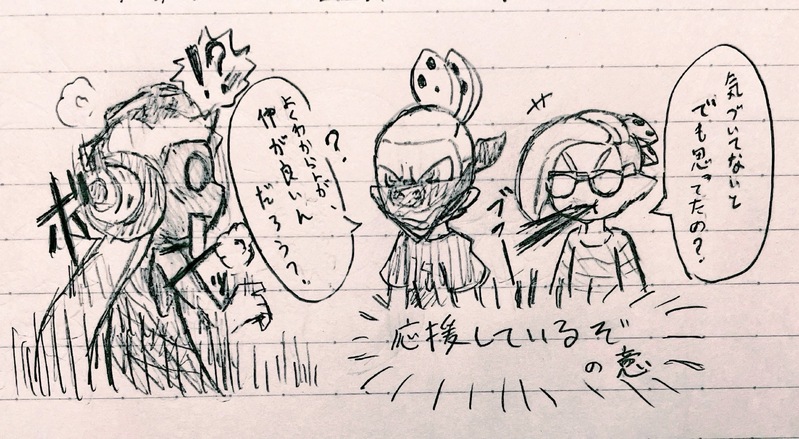 気づいてないと
でも思ってたの?
ブー
?
よくわからんが、
仲が良いん
だろう?
!?
ボ
ッ
応援しているぞ
の意